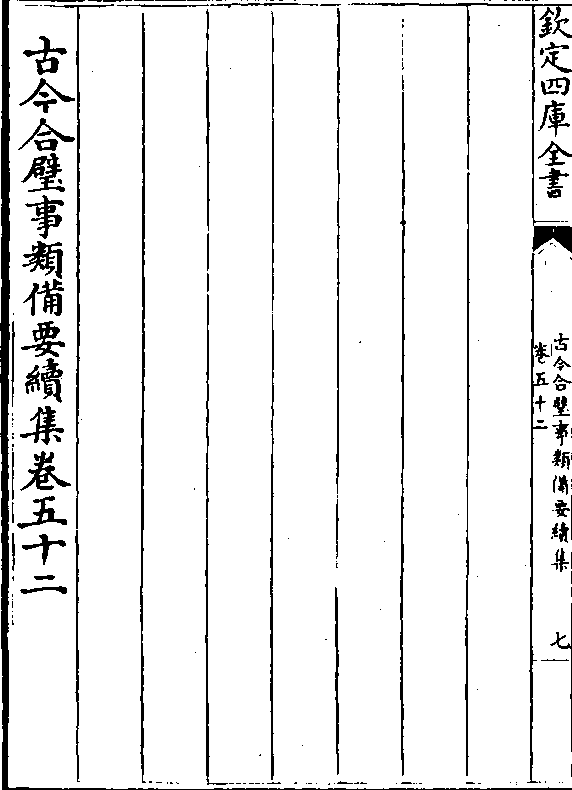 欽定四庫全書
古今合璧事類備要續集
卷五十二
七
古今合璧事類備要續集卷五十二